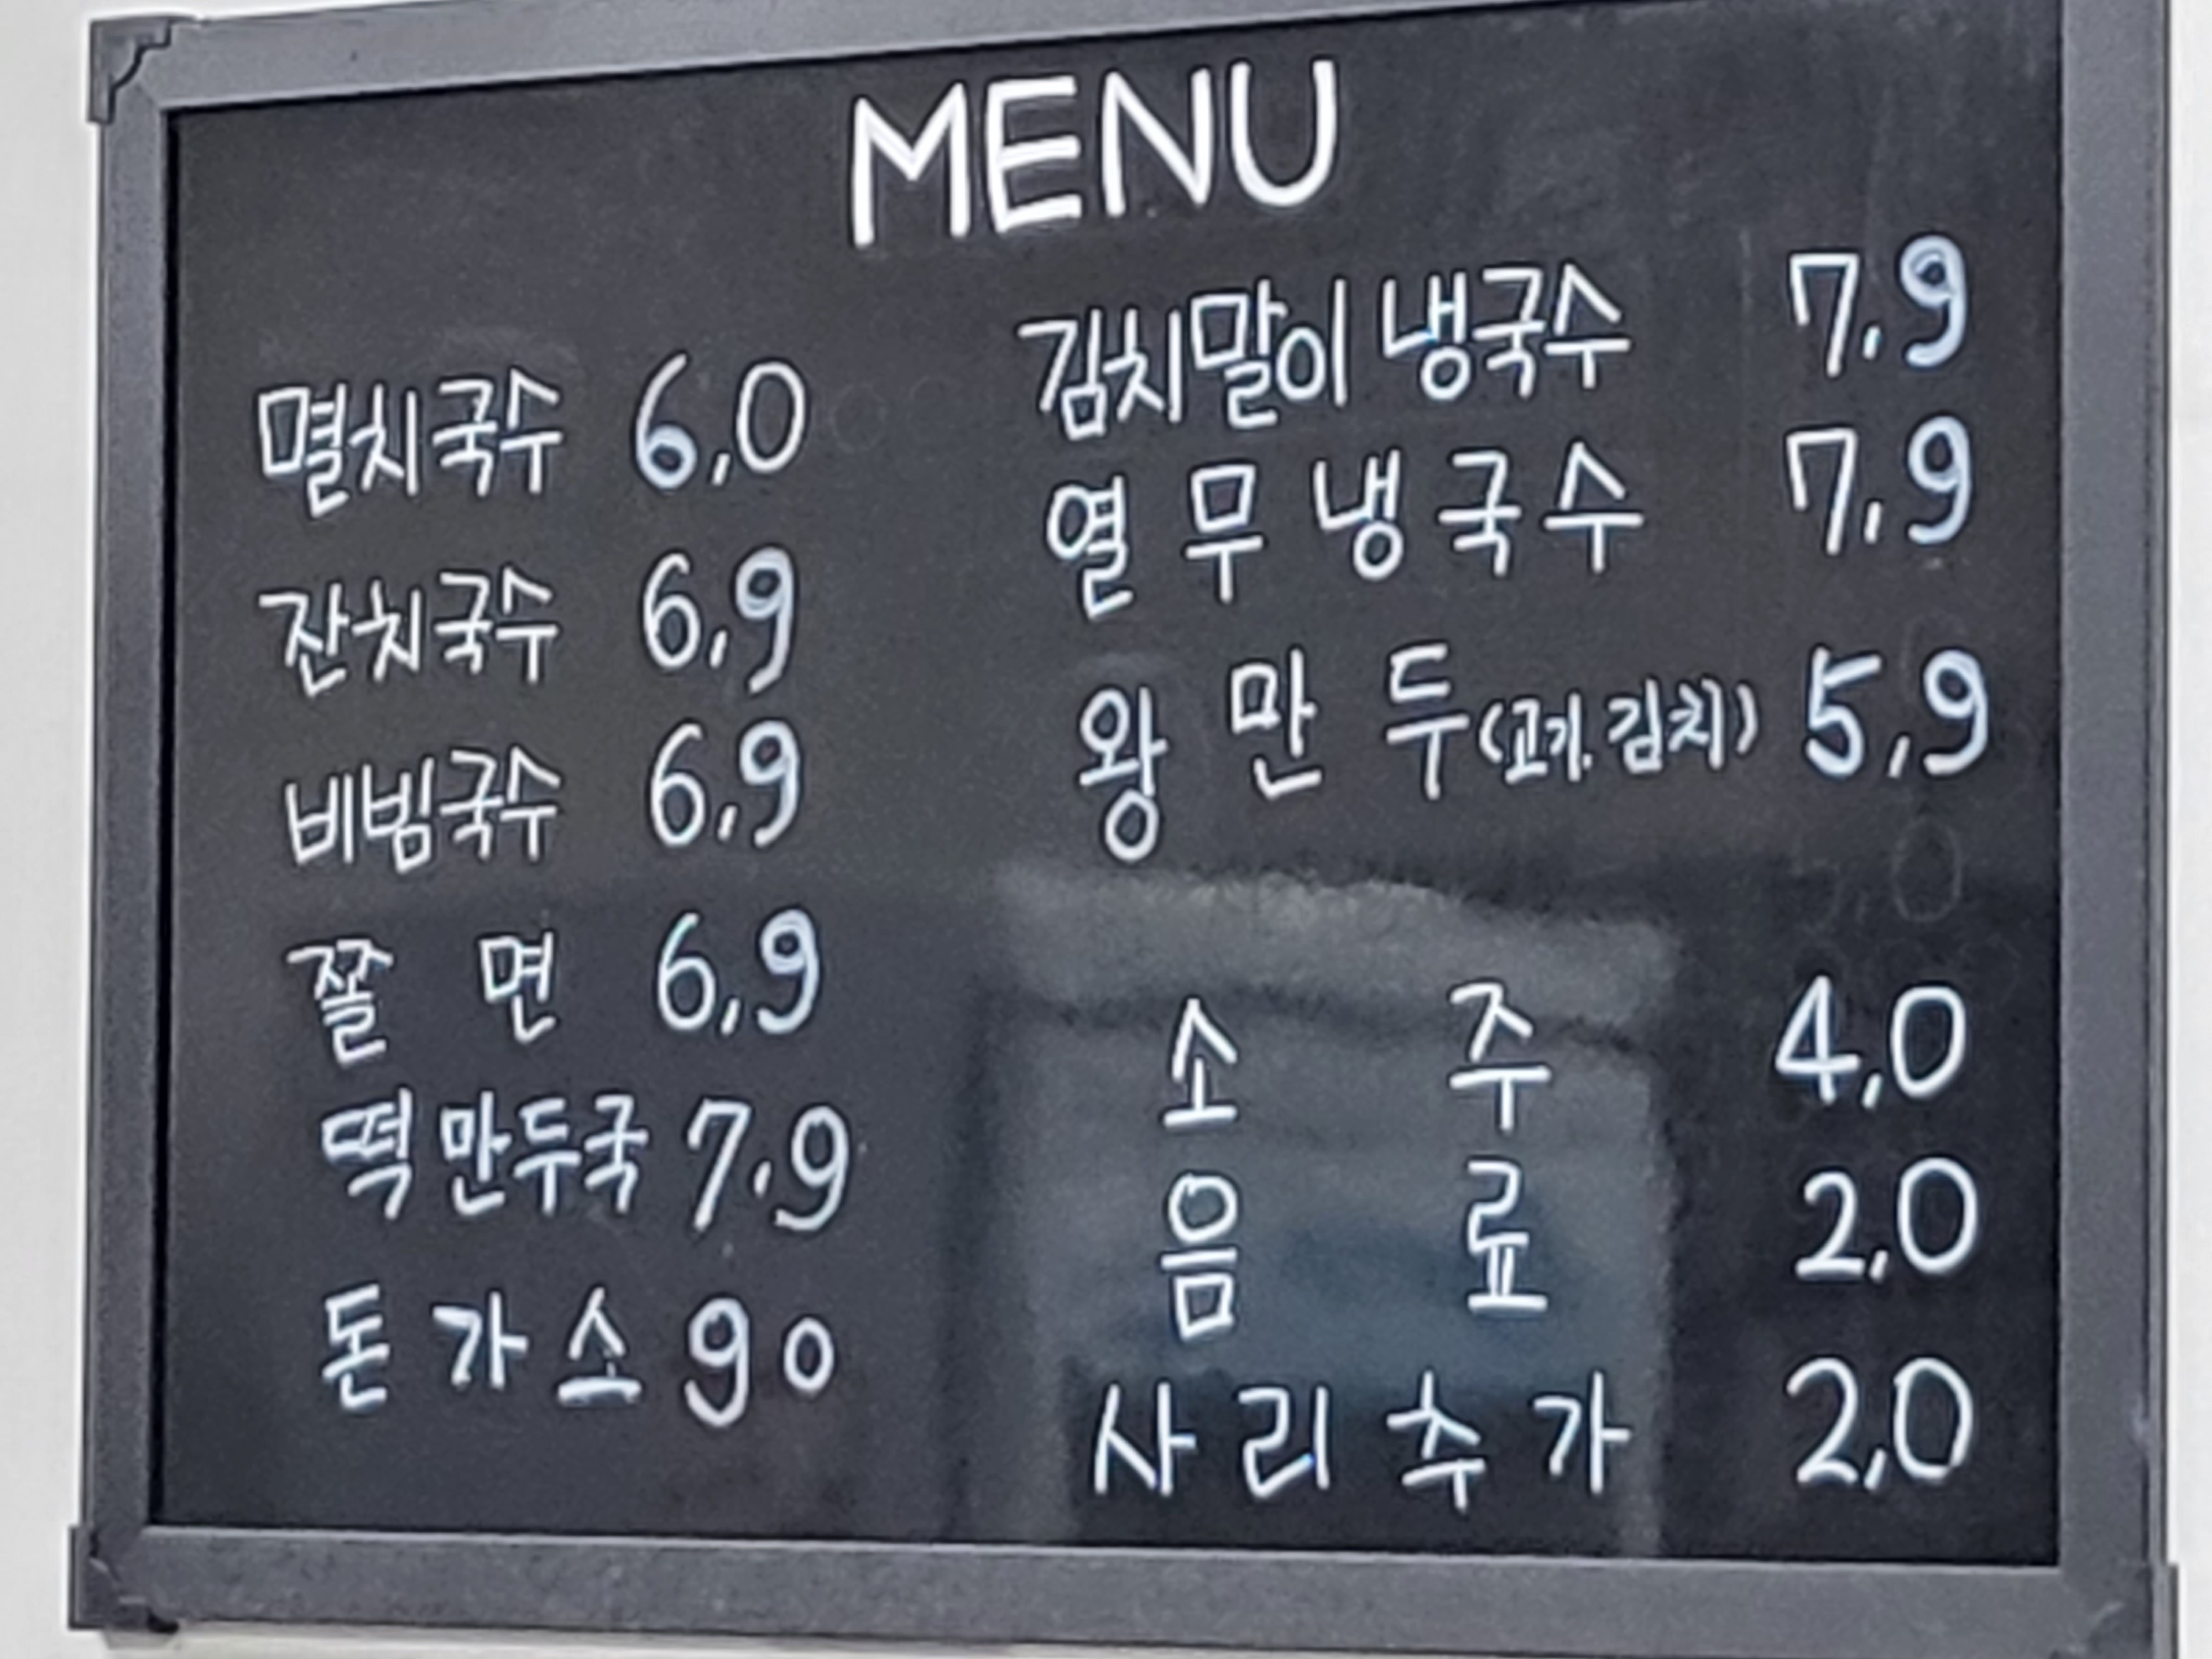 MENU
멸치국수 6,0
잔치국수 6,9
비빔국수 6,9
쫄면 6,9
떡만두국 7.9
돈가소 90
김치말이냉국수 7,9
열무냉국수 7,9
왕만두(고기.김치) 5,9
소주 4,0
음료 2,0
사리추가 2,0